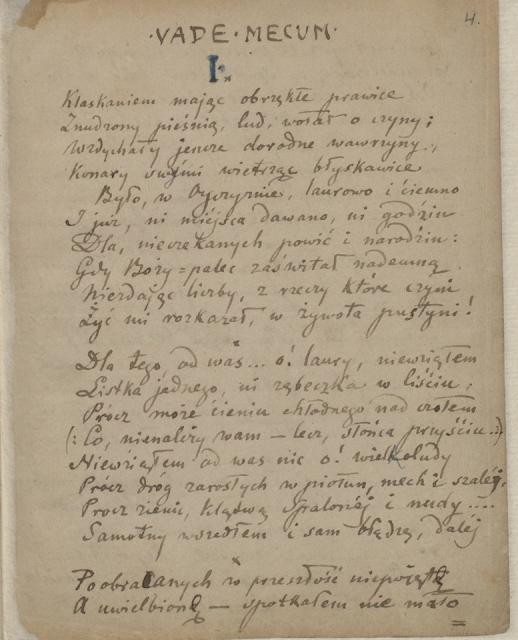 4.
·VADE·MECUM·
I.
Klaskaniem mając obrzękłe prawice
Znudzony pieśnią, lud, wołał o czyny;
Wzdychały jeszcze dorodne wawrzyny,
Konary swymi wietrząc błyskawice
Było, w Ojczyznie, laurowo i ciemno
I już, ni miejsca dawano, ni godzin
Dla, nieczekanych powić i narodzin:
Gdy Boży=palec zaświtał nademną
Nierdając liczby, z rzeczy które czyni
Żyć mi rozkazał, w żywota pustyni!
Dla tego, od was... o! laury, niewziąłem
Listka jednego, ni ząbeczka w liściu,
Prócz może cieniu chłodnego nad czołem
(: Co, nienależy wam — lecz, słońca przyjściu..:)
Niewziąłem od was nic o! wielkoludy
Prócz dróg zarosłych w piołun, mech i szaléj,
Prócz ziemi, klątwą spalonéj i nudy ....
Samotny wszedłem i sam błądzę, daléj
Poobracanych w przeszłość niepojętą
A uwielbioną — spotkałem nie mało